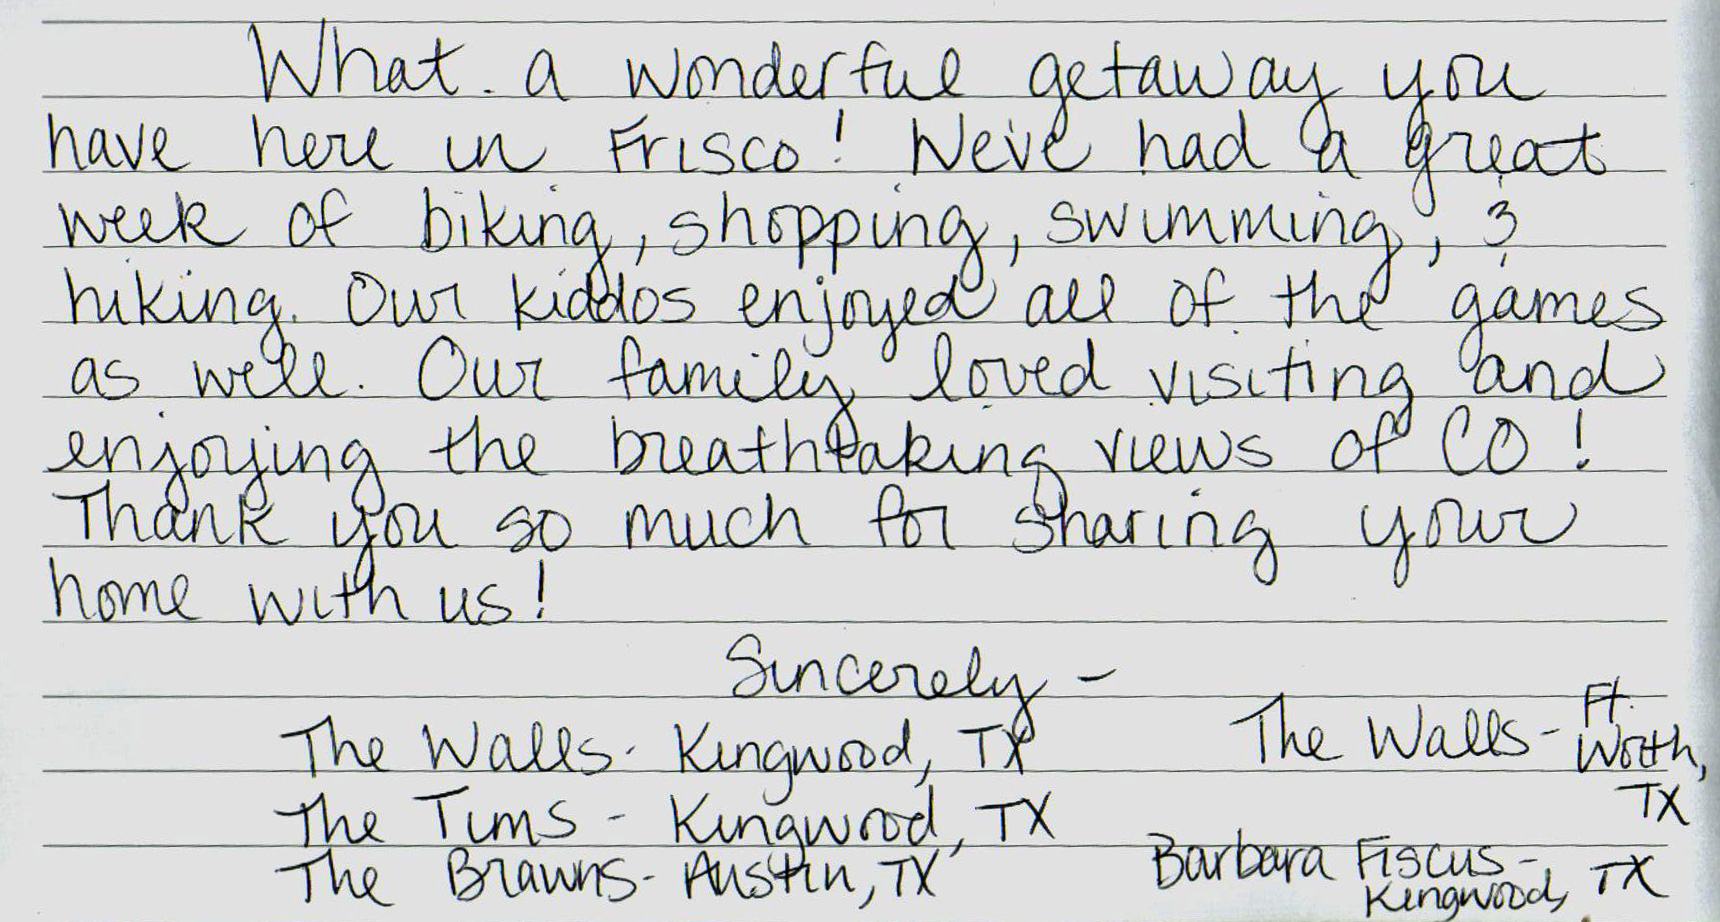 What a wonderful getaway you
have here in Frisco! We've had a great
week of biking, shopping, swimming, &
hiking. Our kiddos enjoyed all of the games
as well. Our family loved visiting and
enjoying the breathtaking views of CO!
Thank you so much for sharing your
home with us!
Sincerely -
The Walls - Kingwood, TX
The Tims - Kingwood, TX
The Brawns - Austin, TX
The Walls - Ft.
Worth,
TX
Barbara Fiscus -
Kingwood, TX